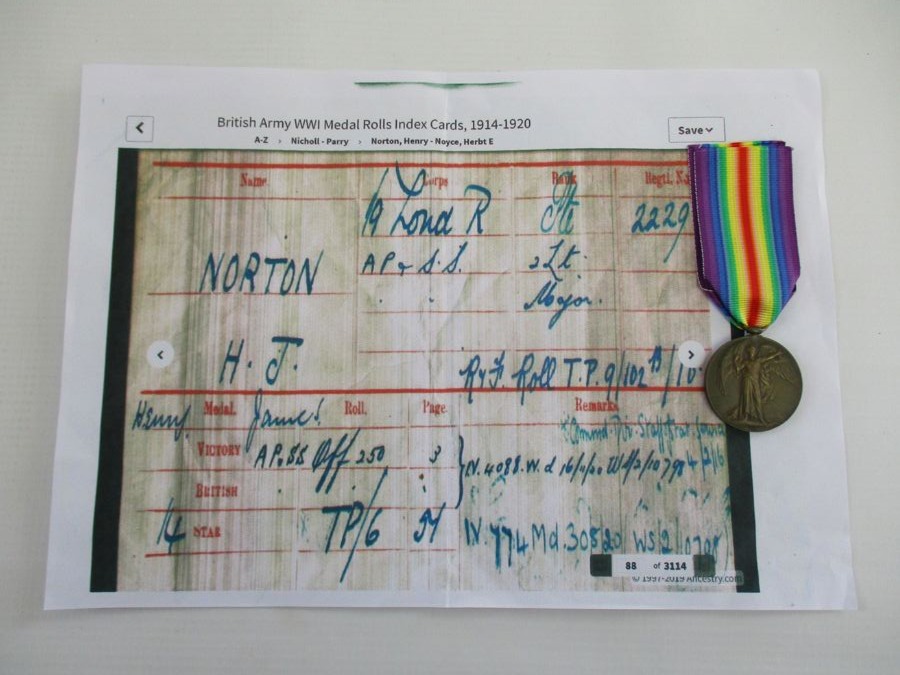 British Army WWI Medal Rolls Index Cards, 1914-1920
Save
A-Z > Nicholl - Parry > Norton, Henry - Noyce, Herbt E
Name. Corps Rank Regtl. No.
19 Lond R Pte 2229
NORTON AP & S.S. 2Lt.
" " Major.
H. J.
R & F Roll T.P. 9/102
Henry James
Medal. Roll. Page. Remarks
VICTORY AP&SS Off 250 3
BRITISH " "
IV. 4088. W. d
14 STAR TP/6 IV. 774 Md. 30520 WS/2
88 of 3114
© 1997-2019 Ancestry.com